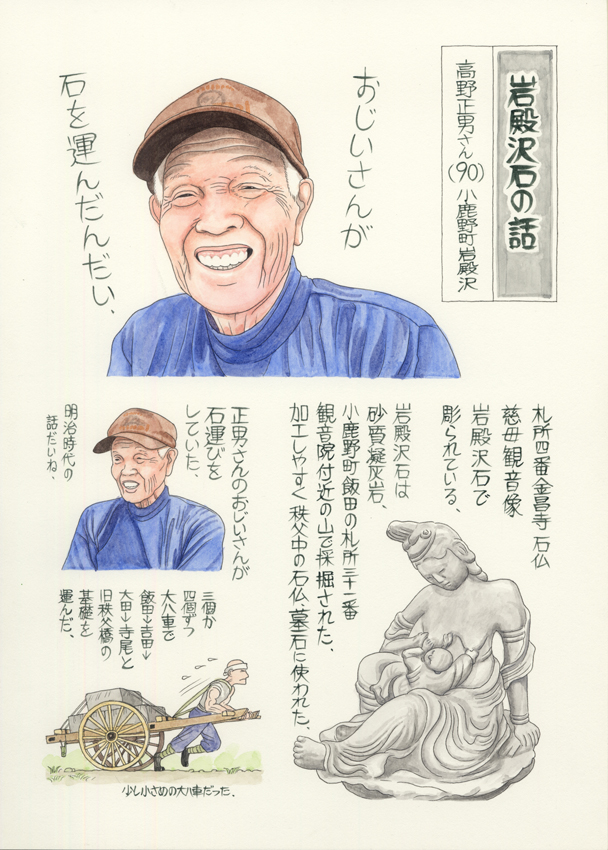 岩殿沢石の話
高野正男さん(90)小鹿野町岩殿沢
おじいさんが
石を運んだんだい、
札所四番金昌寺石仏
慈母観音像
岩殿沢石で
彫られている、
岩殿沢石は
砂質凝灰岩、
小鹿野町飯田の札所三十一番
観音院付近の山で採掘された、
加工しやすく秩父中の石仏、墓石に使われた、
正男さんのおじいさんが
石運びを
していた、
明治時代の
話だいね、
三個か
四個ずつ
大八車で
飯田→吉田→
太田→寺尾と
旧秩父橋の
基礎を
運んだ、
少し小さめの大八車だった、